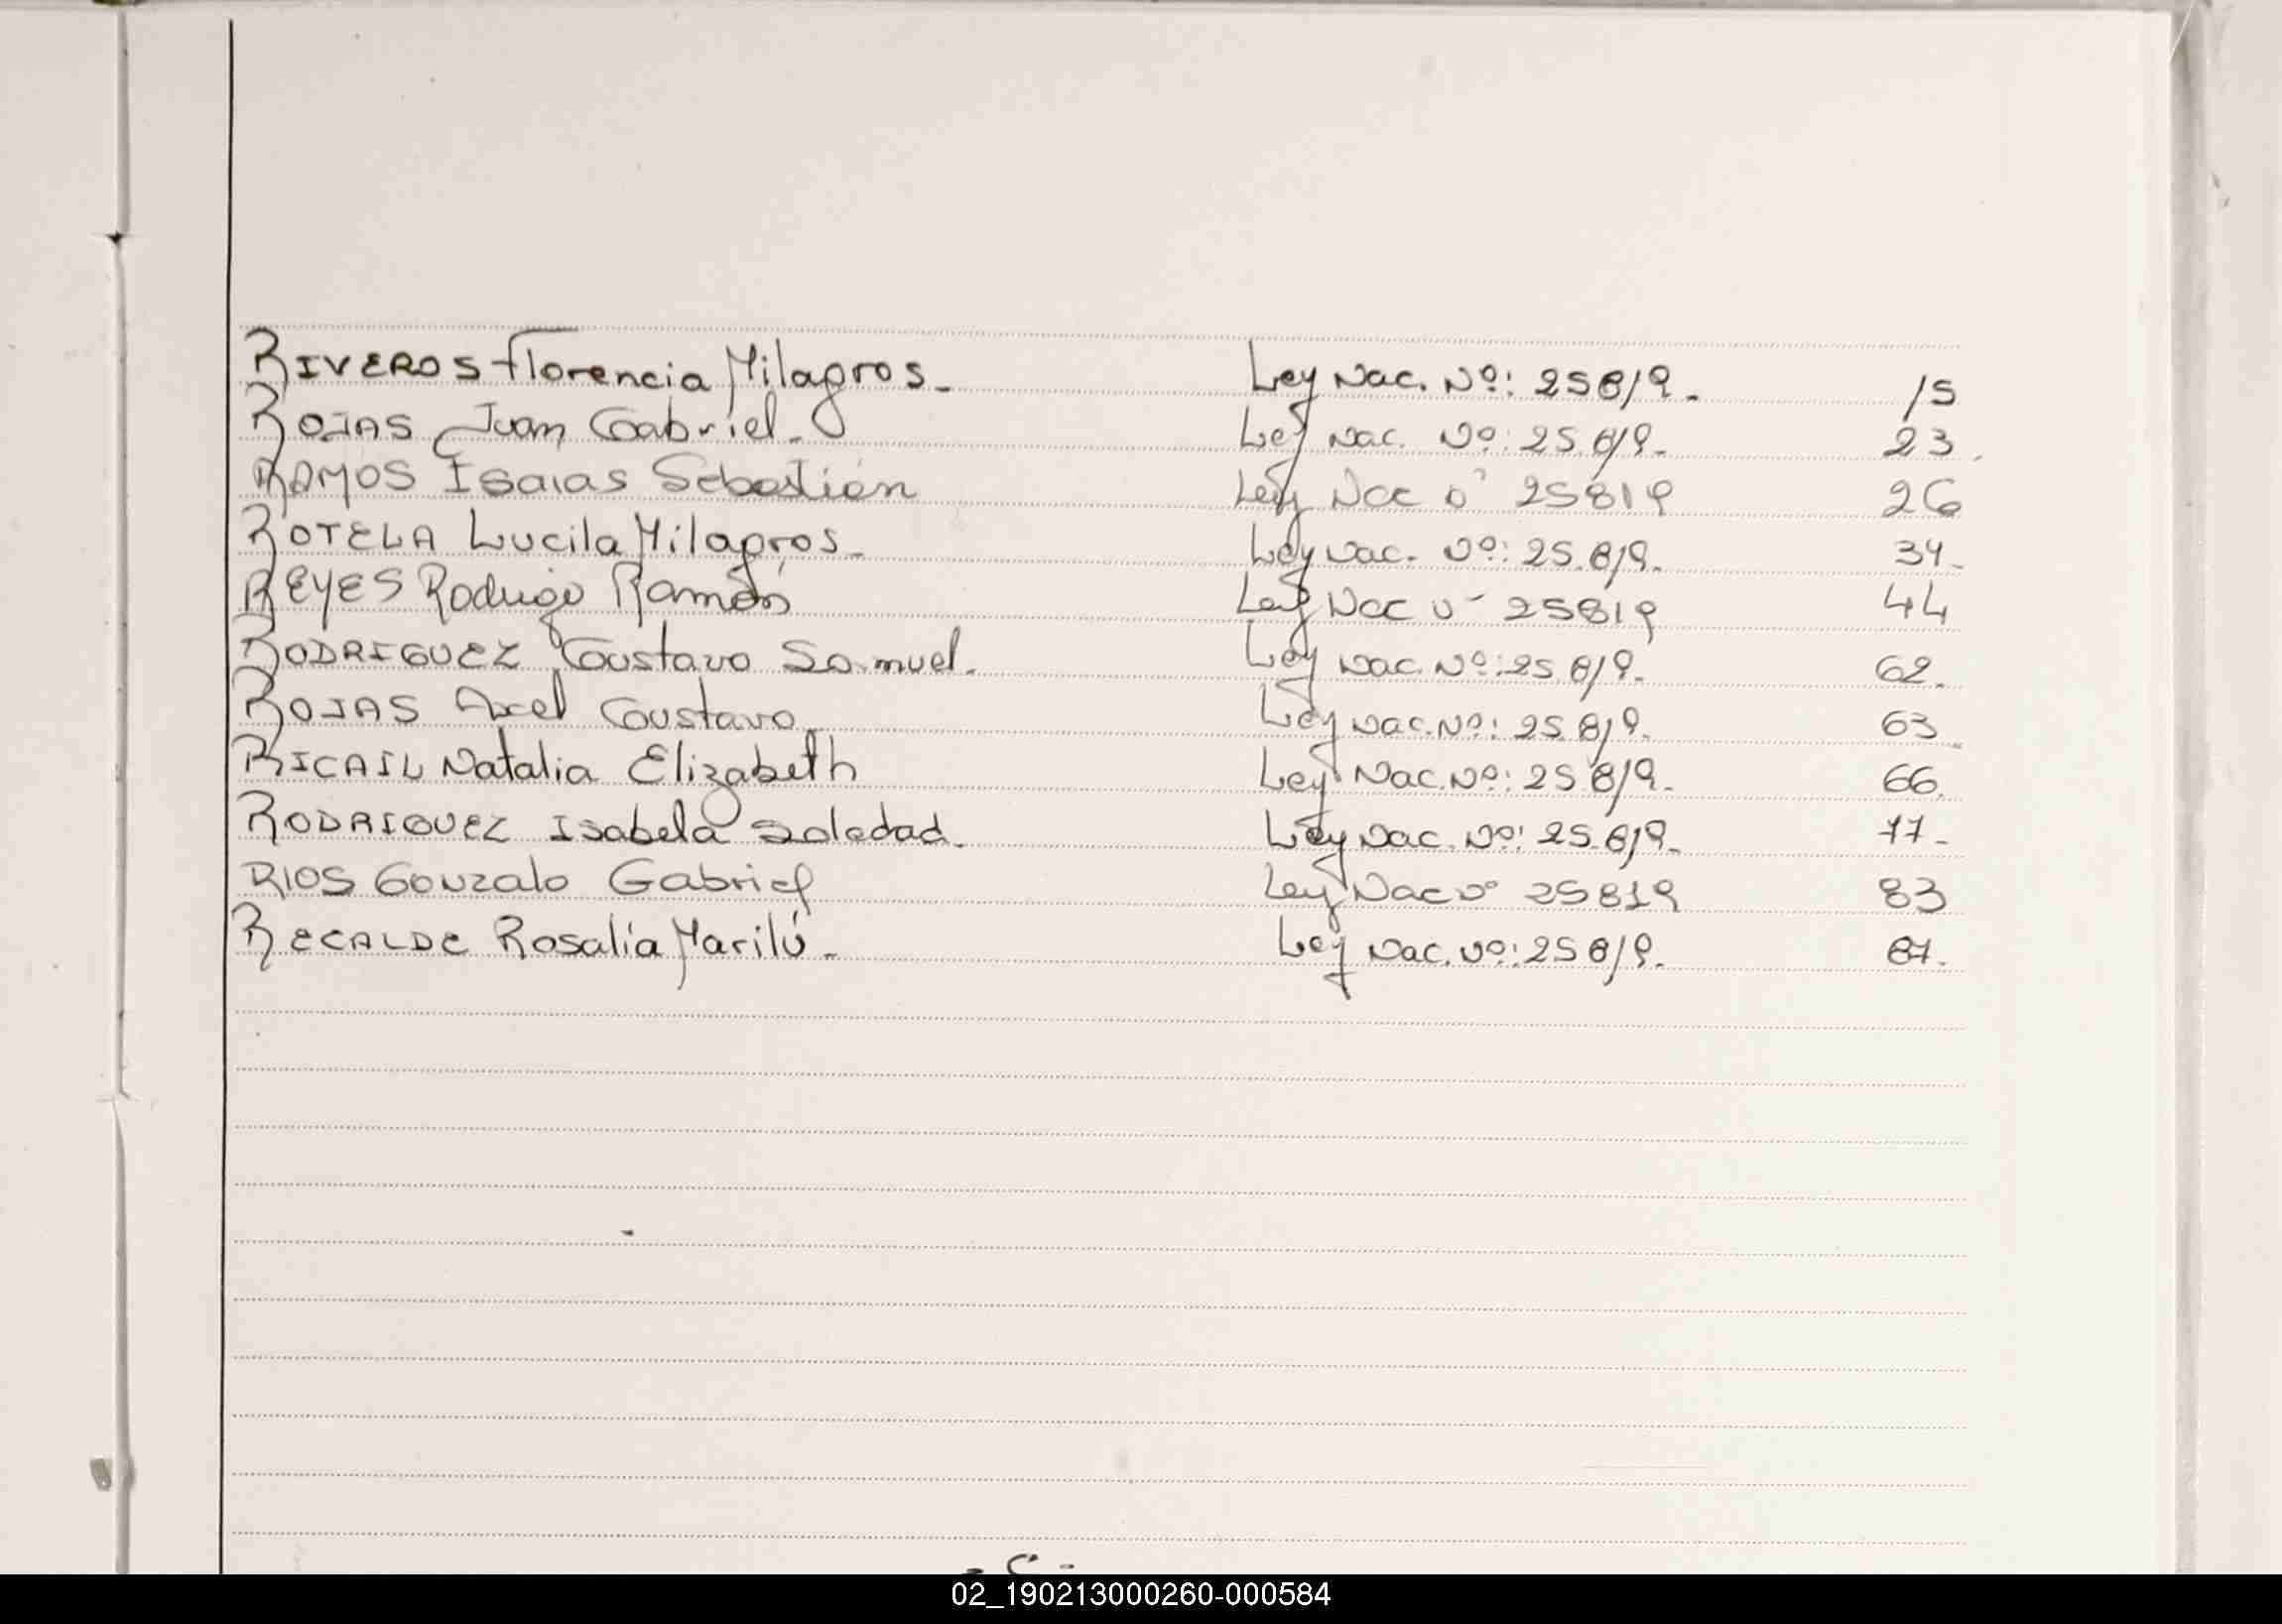 RIVEROS Florencia Milagros.- Ley Nac. Nº: 25819.- 15
ROJAS Juan Gabriel.- Ley Nac. Nº: 25.819.- 23.
RAMOS Isaias Sebastián Ley Nac Nº 25819 26
ROTELA Lucila Milagros.- Ley Nac. Nº: 25.819.- 34.-
REYES Rodrigo Ramón Ley Nac Nº 25819 44
RODRIGUEZ Gustavo Samuel.- Ley Nac. Nº: 25.819.- 62.-
ROJAS Axel Gustavo.- Ley Nac. Nº: 25.819.- 63.-
RICAIL Natalia Elizabeth Ley Nac. Nº: 25.819.- 66.
RODRIGUEZ Isabela Soledad.- Ley Nac. Nº: 25.819.- 77.-
RIOS Gonzalo Gabriel Ley Nac Nº 25819 83
RECALDE Rosalía Marilú.- Ley Nac. Nº: 25819.- 87.-
02_190213000260-000584